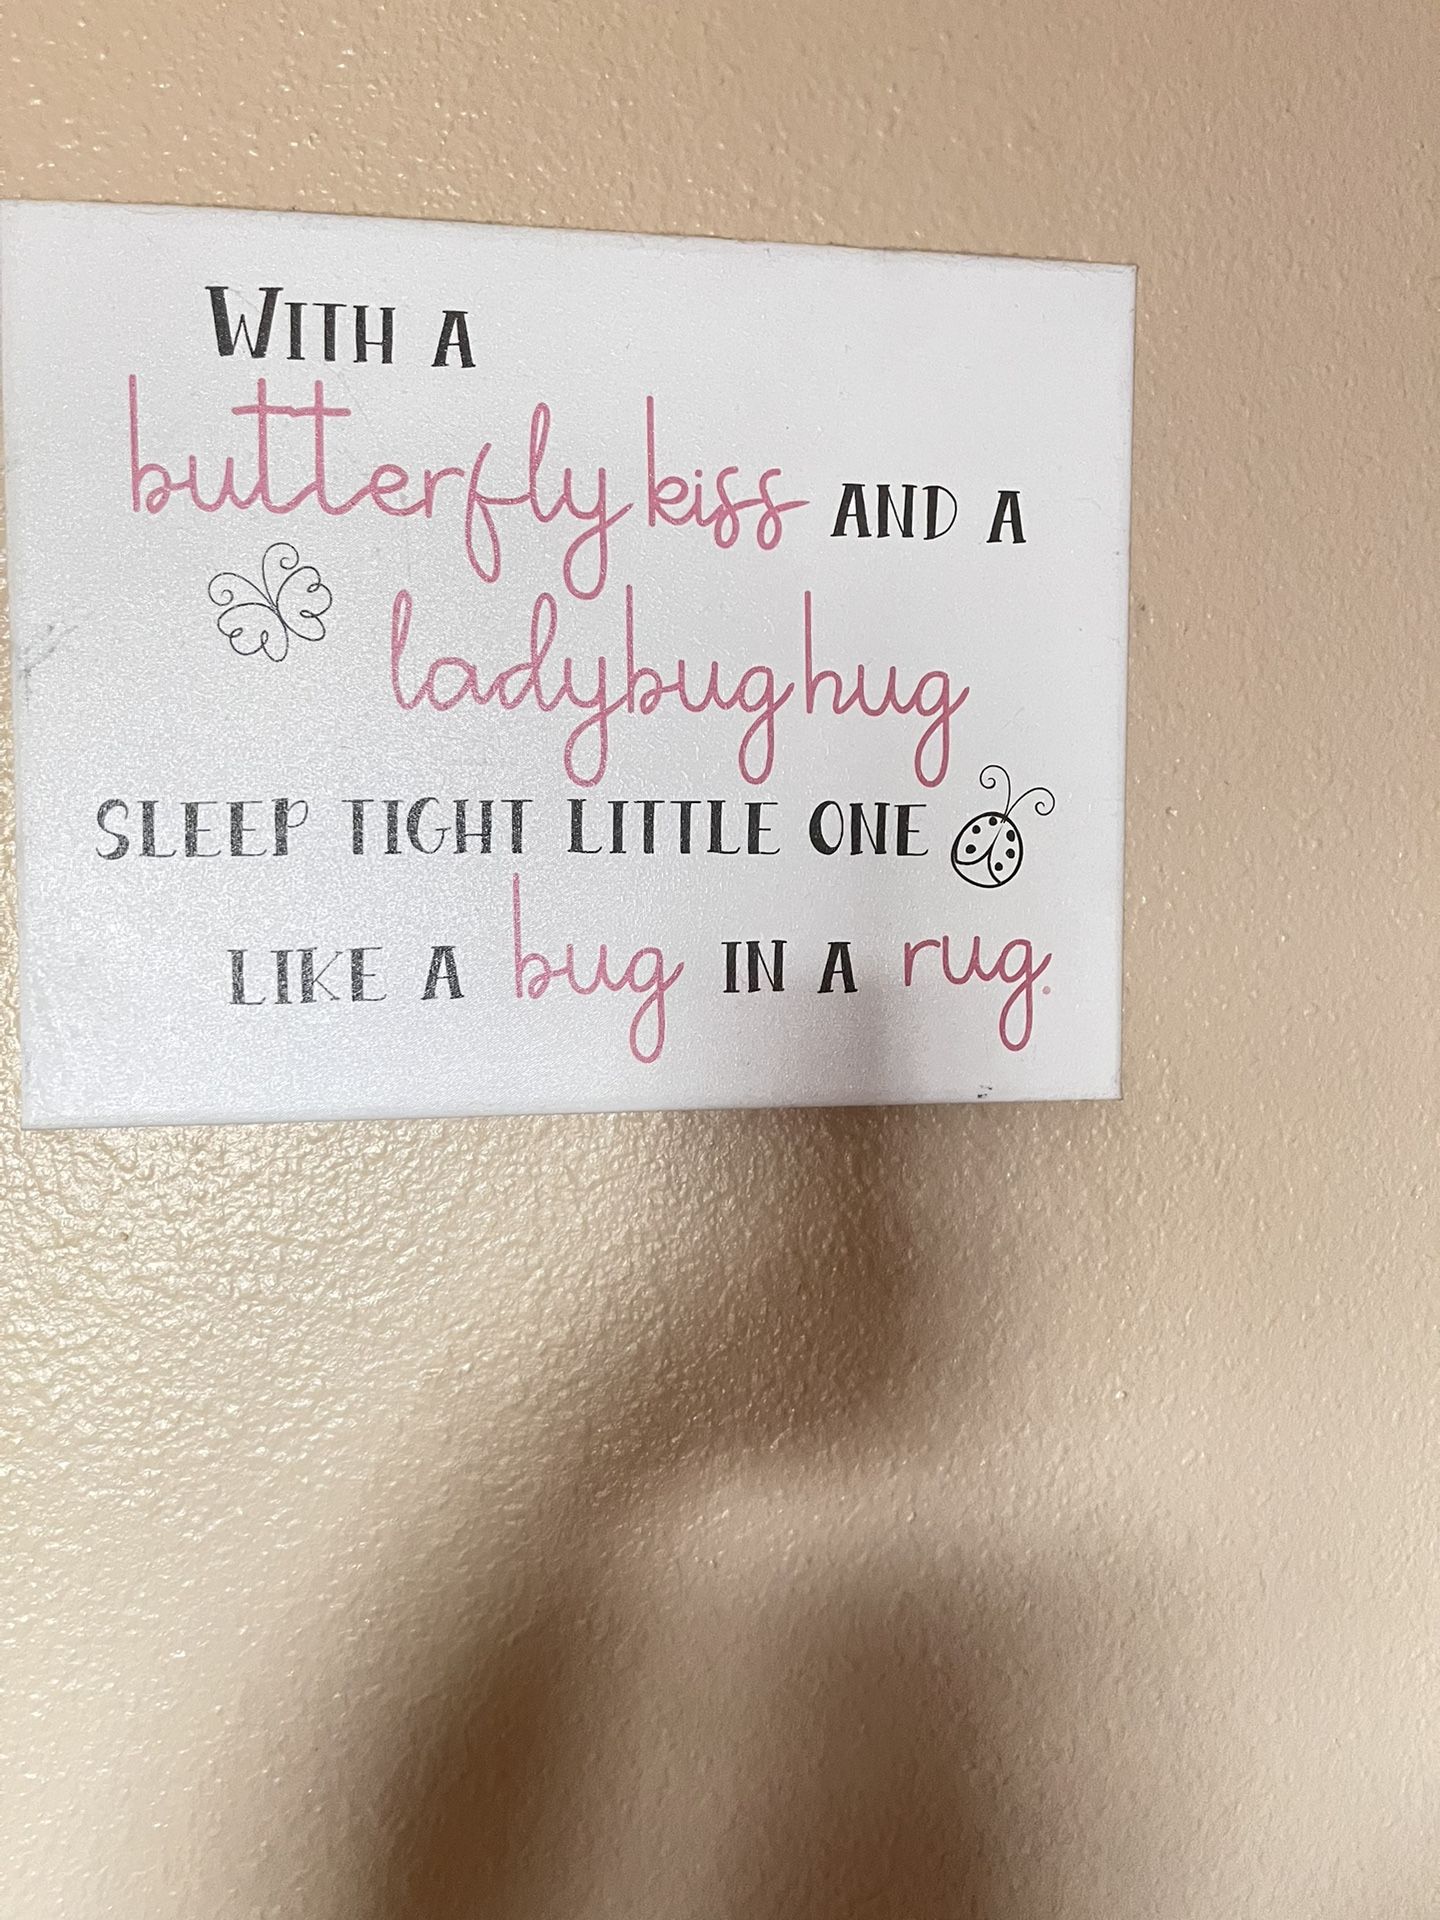 WITH A
butterfly kiss AND A
ladybug hug
SLEEP TIGHT LITTLE ONE
LIKE A bug IN A rug.